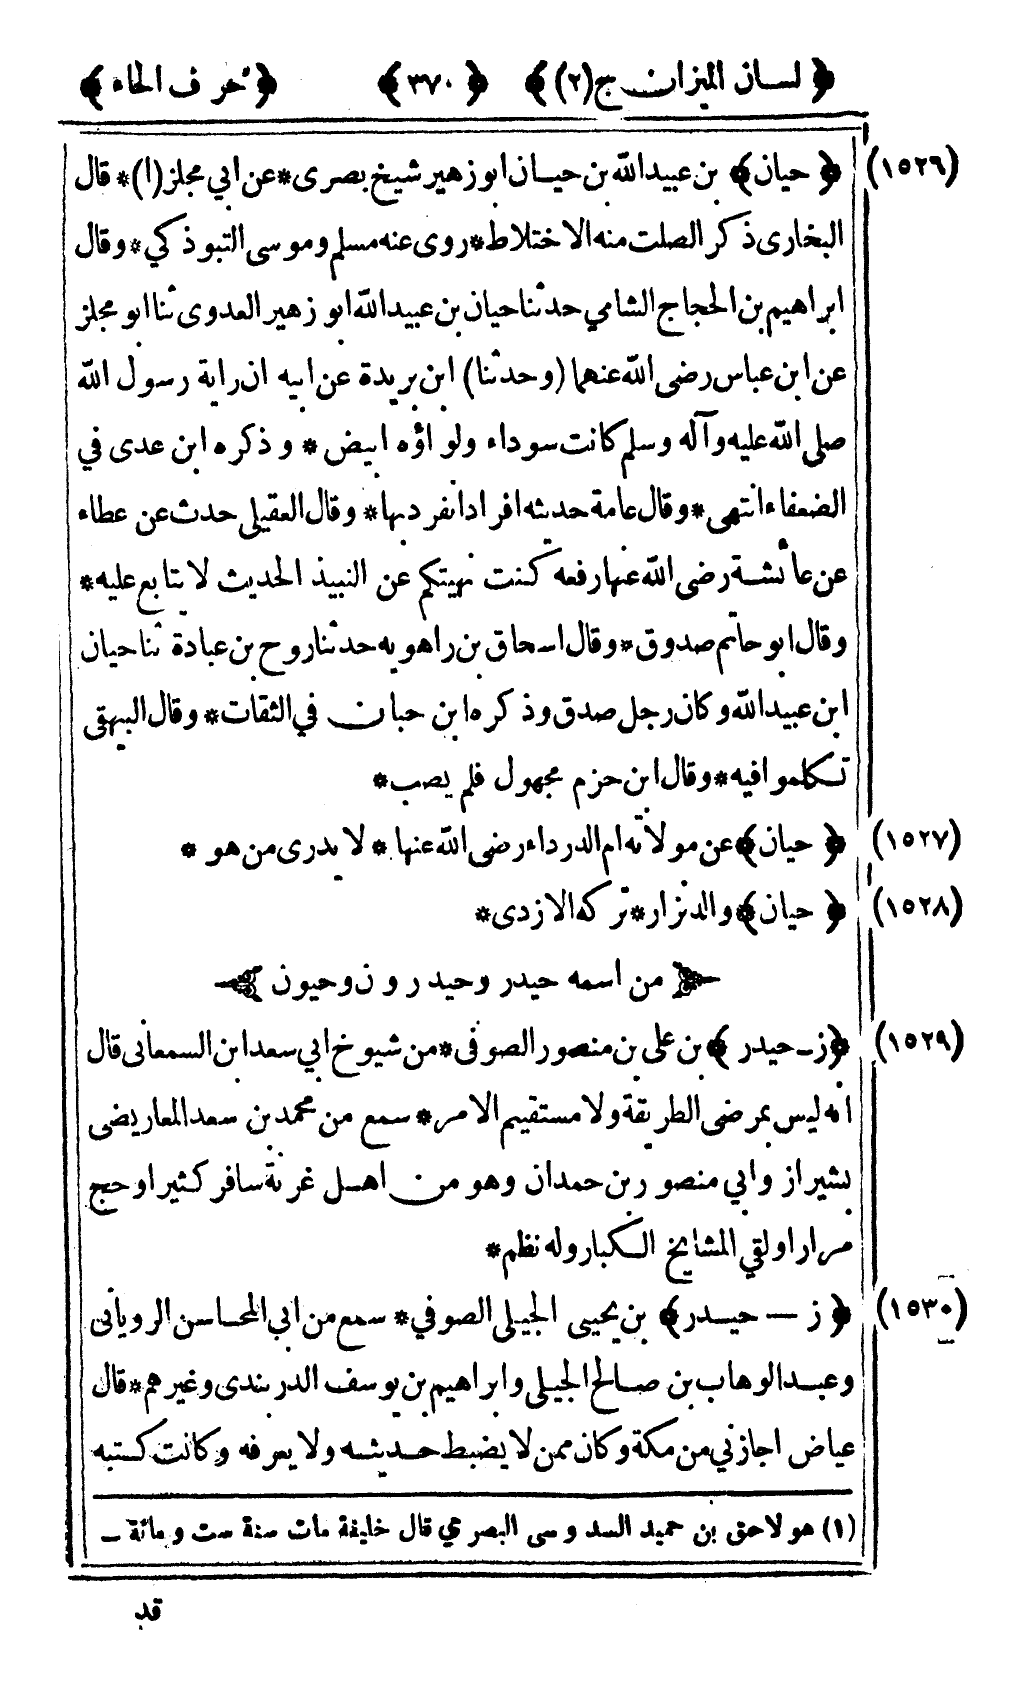 ﴿ لسان الميزان ج (٢) ﴾ ﴿ ٣٧٠ ﴾ ﴿ حرف الحاء ﴾
(١٥٢٦) ﴿ حيان ﴾ بن عبيد الله بن حيان ابو زهير شيخ بصرى * عن ابي مجلز (١) * قال
البخارى ذكر الصلت منه الاختلاط * روى عنه مسلم وموسى التبوذكي * وقال
ابراهيم بن الحجاج الشامي حدثنا حيان بن عبيد الله ابو زهير العدوى ثنا ابو مجلز
عن ابن عباس رضى الله عنهما (وحدثنا) ابن بريدة عن ابيه ان راية رسول الله
صلى الله عليه وآله وسلم كانت سوداء ولواؤه ابيض * وذكره ابن عدى في
الضعفاء انتهى * وقال عامة حديثه افراد انفرد بها * وقال العقيلى حدث عن عطاء
عن عائشة رضى الله عنها رفعه كنت نهيتكم عن النبيذ الحديث لا يتابع عليه *
وقال ابو حاتم صدوق * وقال اسحاق بن راهويه حدثنا روح بن عبادة ثنا حيان
ابن عبيد الله وكان رجل صدق وذكره ابن حبان في الثقات * وقال البيهقى
تكلموا فيه * وقال ابن حزم مجهول فلم يصب *
(١٥٢٧) ﴿ حيان ﴾ عن مولاته ام الدرداء رضى الله عنها * لا يدرى من هو *
(١٥٢٨) ﴿ حيان ﴾ والد نزار * تركه الازدى *
من اسمه حيدر وحيدرون وحيون
(١٥٢٩) ﴿ ز - حيدر ﴾ بن على بن منصور الصوفى * من شيوخ ابي سعد ابن السمعانى قال
انه ليس بمرضى الطريقة ولا مستقيم الامر * سمع من محمد بن سعد المعاريضى
بشيراز وابي منصور بن حمدان وهو من اهل غزنة سافر كثيرا وحج
مرارا ولقي المشايخ الكبار وله نظم *
(١٥٣٠) ﴿ ز — حيدر ﴾ بن يحيى الجيلى الصوفي * سمع من ابي المحاسن الرويانى
وعبد الوهاب بن صالح الجيلى وابراهيم بن يوسف الدربندى وغيرهم * قال
عياض اجازني من مكة وكان ممن لا يضبط حديثه ولا يعرفه وكانت كتبه
(١) هو لاحق بن حميد السدوسى البصري قال خليفة مات سنة ست ومائة -
قد